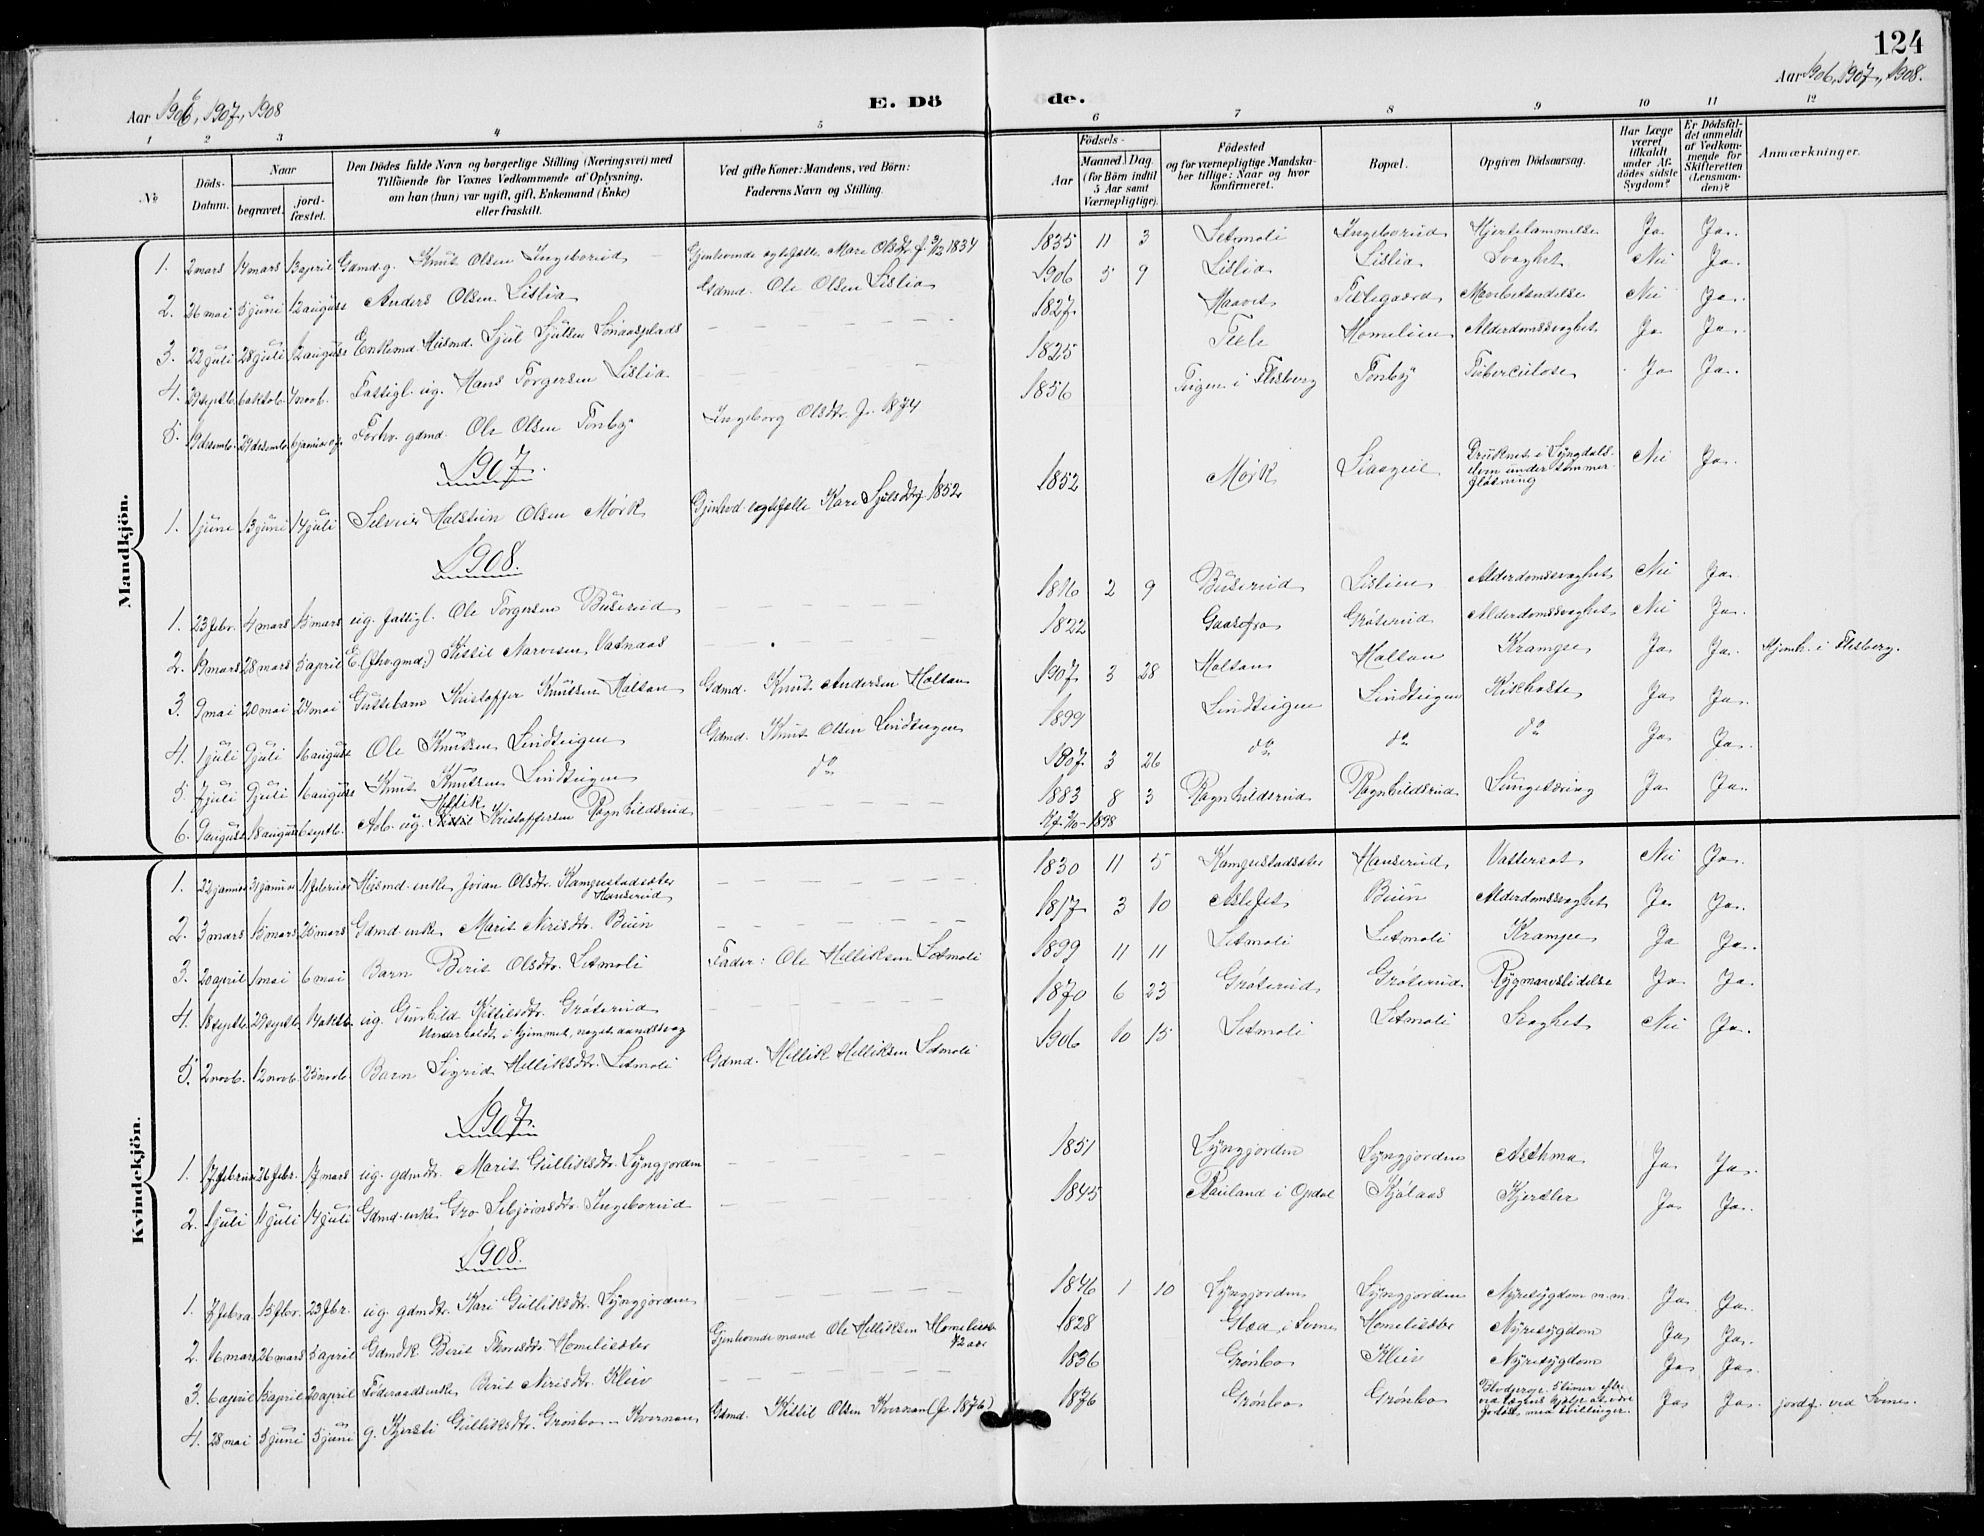 124
Aar 1906, 1907, 1908
E. Dö
de.
Aar 1906, 1907, 1908.
1 2 3 4 5 6 7 8 9 10 11 12
No
Döds-Datum.
Naar
begravet.
jord-fæstet.
Den Dödes fulde Navn og borgerlige Stilling (Næringsvei) med
Tilföiende for Voxnes Vedkommende af Oplysning,
om han (hun) var ugift, gift, Enkemand (Enke)
eller fraskilt.
Ved gifte Koner: Mandens, ved Börn:
Faderens Navn og Stilling.
Födsels-
Aar
Maaned. Dag.
(for Börn indtil
5 Aar samt
Værnepligtige).
Födested
og for værnepligtige Mandska-
ber tillige: Naar og hvor
konfirmeret.
Bopæl.
Opgiven Dödsaarsag.
Har Læge
været
tilkaldt
under Af-
dödes sidste
Sygdom?
Er Dödsfal-
det anmeldt
af Vedkom-
mende for
Skifteretten
(Lensman-
den)?
Anmærkninger.
Mandkjön.
1. 2 mars 14 mars 13 april Gdmd. g. Knut Olsen Ingeborud Gjenlevende egtefælle Mari Olsdtr. f. 1834 1835 11 3 Letmoli Ingeborud Hjertelammelse Ja Ja.
2. 26 mai 5 juni 12 august Anders Olsen Lislia Gdmd. Ole Olsen Lislia 1906 5 9 Lislia Lislia Svaghet Nei Ja.
3. 22 juli 28 juli 12 august Enkemd. Husmd. Sjul Sjulsen 1827 Tveitegaard Mavebetændelse Nei Ja.
4. 29 septb. 6 oktob. 7 novb. Fattigl. ug. Hans Torgersen Lislia 1825 Homelien Alderdomssvaghet Ja Ja.
5. 19 desemb. 29 desemb. 6 januar 07 Forhv. gdmd. Ole Olsen Tonby Ingeborg Olsdtr. f. 1874 1856 Teigen i Flesberg Tonby Tuberculose Ja Ja.
1907.
1. 1 juni 13 juni 14 juli Selveier Halstein Olsen Mørk Gjenlevd. egtefælle Kari Sjulsdtr. 1852 1852 Mørk Druknet i Lyngdals-
elven under tømmer-
fløtning Nei Ja.
1908.
1. 23 febr. 4 mars 15 mars ug. fattigl. Ole Torgersen Buserud 1816 2 9 Buserud Lislien Alderdomssvaghet Nei Ja.
2. 19 mars 28 mars 5 april E. (fhv. gmd.) Kittil Narvesen Vatnaas 1822 Grøterud Alderdomssvaghet Nei Ja.
3. 9 mai 20 mai 24 mai Guttebarn Kristoffer Knutsen Holtan Gdmd. Knut Andersen Holtan 1907 3 28 Holtan Holtan Krampe Ja Ja. Hjemh. i Flesberg.
4. 1 juli 9 juli 16 august Ole Knutsen Lindteigen Gdmd. Knut Olsen Lindteigen 1899 Lindteigen Lindteigen Kikhoste Ja Ja.
5. 7 juli 9 juli 16 august Knut Knutsen Lindteigen do 1907 3 26 do do do Ja Ja.
6. 9 august 18 august 6 septb. Arb. ug. Hellik Kristoffersen Ragnhildsrud 1883 8 3 Ragnhildsrud Ragnhildsrud Lungetæring Ja Ja.
Kf. 2/10-1898
Kvindekjön.
1. 22 januar 31 januar 11 februar Husmd-enke Joran Olsdtr. Kamgustadsæter
Hauserud 1830 11 5 Kamgustadsæter Hauserud Vattersot Nei Ja.
2. 3 mars 13 mars 26 mars Gdmd. enke Marit Nirisdtr. Buin 1817 3 10 Asletet Buin Alderdomssvaghet Ja Ja.
3. 20 april 1 mai 6 mai Barn Berit Olsdtr. Letmoli Fader: Ole Helliksen Letmoli 1899 11 11 Letmoli Letmoli Krampe Ja Ja.
4. 18 septb. 29 septb. 14 oktb. ug. Gunhild Kittilsdtr. Grøterud
Underholdt i hjemmet, noget aandssvag 1870 6 23 Grøterud Grøterud Rygmarvslidelse Ja Ja.
5. 2 novb. 12 novb. 25 novb. Barn Sigrid Helliksdtr. Letmoli Gdmd. Hellik Helliksen Letmoli 1906 10 15 Letmoli Letmoli Svaghet Nei Ja.
1907.
1. 17 februar 26 febr. 17 mars ug. gdmdtr. Marit Gulliksdtr. Lyngjorden 1851 Lyngjorden Lyngjorden Asthma Ja Ja.
2. 1 juli 11 juli 14 juli Gdmd-enke Gro Sebjørnsdtr. Ingeborud 1845 Rauland i Opdal Kjølaas Kjertler Ja Ja.
1908.
1. 7 februar 15 febr. 23 febr. ug. gdmdtr. Kari Gulliksdtr. Lyngjorden 1846 1 10 Lyngjorden Lyngjorden Nyresygdom m.m. Ja Ja.
2. 16 mars 26 mars 5 april Gdmdk. Berit Thoresdtr. Homelisæter Gjenlevende mand Ole Helliksen Homelisæt. 72 aar 1828 Homelisæter Nyresygdom Ja Ja.
3. 6 april 15 april 20 april Føderaadsenke Berit Nirisdtr. Kleiv 1836 Grønbo Kleiv Nyresygdom Ja Ja.
4. 28 mai 5 juni 5 juni g. Kjersti Gulliksdtr. Grønbo - Kvernan Gdmd. Kittil Olsen Kvernan (f. 1876) 1876 Grønbo Grønbo Ja Ja. jordf. ved Svene.